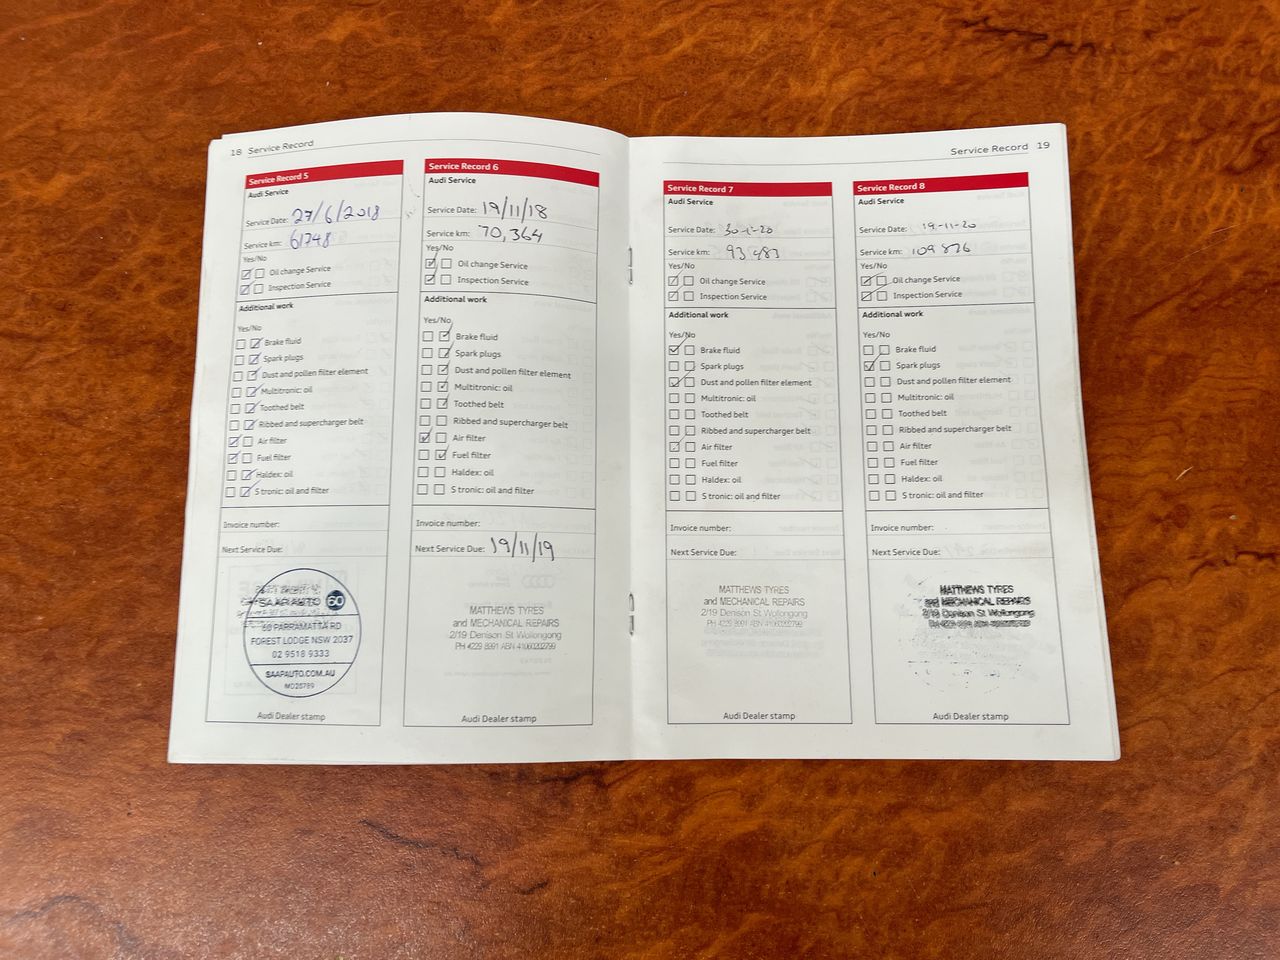 18 Service Record
Service Record 5
Audi Service
Service Date: 27/6/2018
Service km: 61748
Yes/No
Oil change Service
Inspection Service
Additional work
Yes/No
Brake fluid
Spark plugs
Dust and pollen filter element
Multitronic: oil
Toothed belt
Ribbed and supercharger belt
Air filter
Fuel filter
Haldex: oil
S tronic: oil and filter
Invoice number:
Next Service Due:
SAAPAUTO 60
60 PARRAMATTA RD
FOREST LODGE NSW 2037
02 9518 9333
SAAPAUTO.COM.AU
Audi Dealer stamp
Service Record 6
Audi Service
Service Date: 19/11/18
Service km: 70,364
Yes/No
Oil change Service
Inspection Service
Additional work
Yes/No
Brake fluid
Spark plugs
Dust and pollen filter element
Multitronic: oil
Toothed belt
Ribbed and supercharger belt
Air filter
Fuel filter
Haldex: oil
S tronic: oil and filter
Invoice number:
Next Service Due: 19/11/19
MATTHEWS TYRES
and MECHANICAL REPAIRS
2/19 Denison St Wollongong
PH 4229 8991 ABN 41060202799
Audi Dealer stamp
Service Record 19
Service Record 7
Audi Service
Service Date: 30-1-20
Service km: 93483
Yes/No
Oil change Service
Inspection Service
Additional work
Yes/No
Brake fluid
Spark plugs
Dust and pollen filter element
Multitronic: oil
Toothed belt
Ribbed and supercharger belt
Air filter
Fuel filter
Haldex: oil
S tronic: oil and filter
Invoice number:
Next Service Due:
MATTHEWS TYRES
and MECHANICAL REPAIRS
2/19 Denison St Wollongong
PH 4229 8991 ABN 41060202799
Audi Dealer stamp
Service Record 8
Audi Service
Service Date: 19-11-20
Service km: 109876
Yes/No
Oil change Service
Inspection Service
Additional work
Yes/No
Brake fluid
Spark plugs
Dust and pollen filter element
Multitronic: oil
Toothed belt
Ribbed and supercharger belt
Air filter
Fuel filter
Haldex: oil
S tronic: oil and filter
Invoice number:
Next Service Due:
MATTHEWS TYRES
and MECHANICAL REPAIRS
2/19 Denison St Wollongong
Audi Dealer stamp